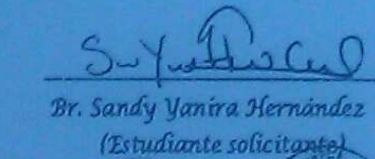 Br. Sandy Yanira Hernández
(Estudiante solicitante)